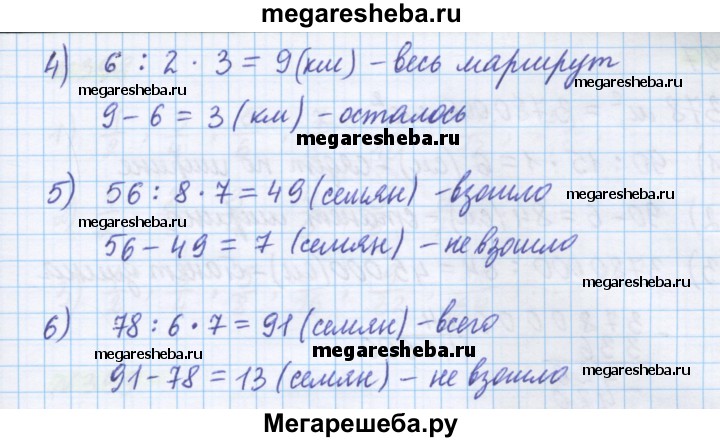 megaresheba.ru
4) 6 : 2 · 3 = 9 (км) – весь маршрут
megaresheba.ru
megaresheba.ru
9 – 6 = 3 (км) – осталось
megaresheba.ru
5) 56 : 8 · 7 = 49 (семян) – взошло
megaresheba.ru
megaresheba.ru
56 – 49 = 7 (семян) – не взошло
megaresheba.ru
6) 78 : 6 · 7 = 91 (семян) – всего
megaresheba.ru
megaresheba.ru
91 – 78 = 13 (семян) – не взошло
megaresheba.ru
Мегарешеба.ру